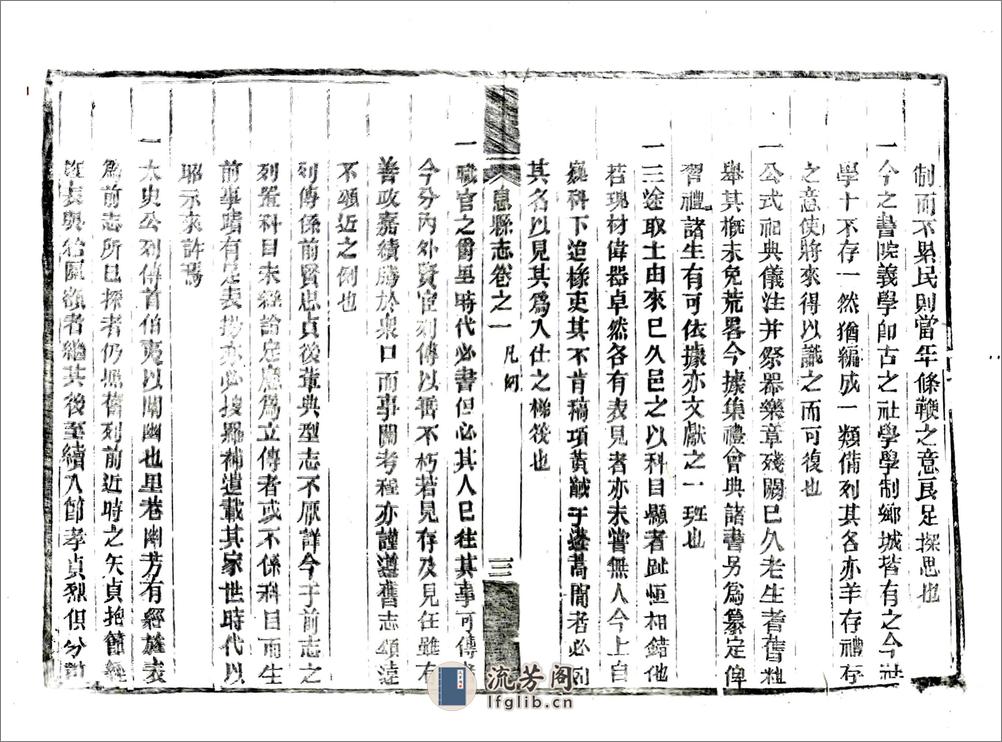 制而不累民則當年條鞭之意良足探思也
一今之書院義學卽古之社學學制鄉城皆有之今社
學十不存一然猶編成一類備列其名亦羊存禮存
之意使將來得以識之而可復也
一公式祀典儀注并祭器樂章殘闕已久老生耆舊粗
舉其槪未免荒畧今據集禮會典諸書另爲纂定俾
習禮諸生有可依據亦文獻之一班也
一三途取士由來已久邑之以科目顯者趾恒相錯他
若瑰材偉器卓然各有表見者亦未嘗無人今上自
科下逮椽吏其不肯稿項黃馘于蓬蒿間者必列
其名以見其爲入仕之梯後也
息縣志卷之一 凡例 三
一職官之爵里時代必書但必其人已往其事可傳
今分內外賢宦列傳以垂不朽若見存及見任雖有
善政嘉績騰於衆口而事關考程亦謹遵舊志頌遠
不頌近之例也
列傳係前賢忠貞後輩典型志不厭詳今于前志之
列置科目未經論定應爲立傳者或不係科目而生
前事蹟有足表抄亦必搜羅補遺載其家世時代以
昭示來許焉
一太史公列傳首伯夷以闡幽也里巷幽芳有經旌表
爲前志所已採者仍照舊列前近時之矢貞抱節經
旌表與給匾額者繼其後至續入節孝貞烈俱分
流芳阁
lfglib.cn